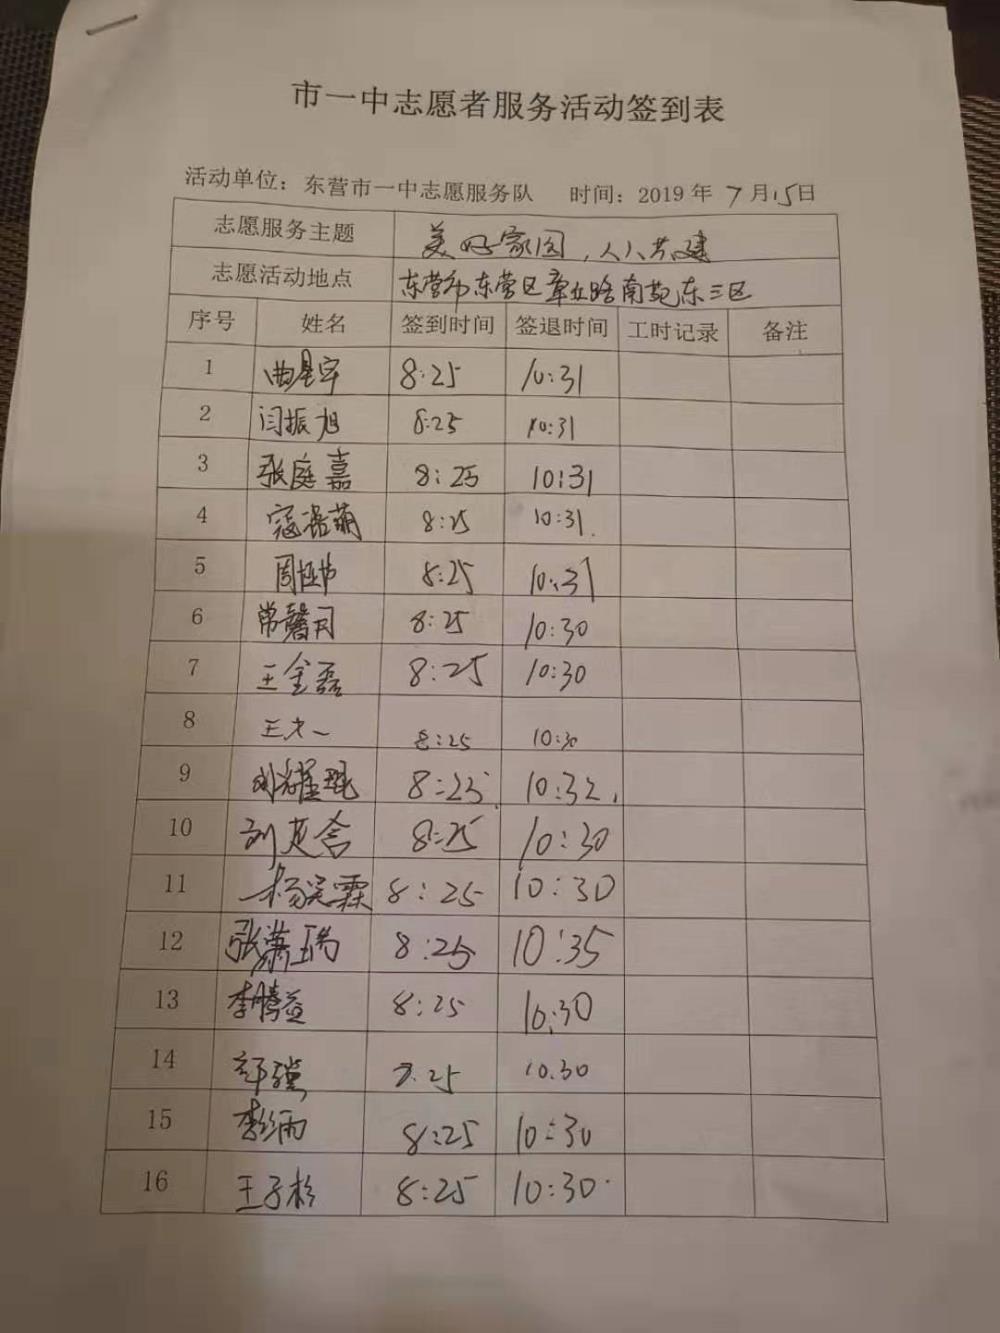 市一中志愿者服务活动签到表
活动单位：东营市一中志愿服务队 时间：2019年7月15日
志愿服务主题 美好家园，人人共建
志愿活动地点 东营市东营区章丘路南苑东三区
序号 姓名 签到时间 签退时间 工时记录 备注
1 曲星宇 8:25 10:31
2 闫振旭 8:25 10:31
3 张庭嘉 8:25 10:31
4 寇 萌 8:25 10:31
5 周 8:25 10:31
6 常馨月 8:25 10:30
7 王金磊 8:25 10:30
8 王 一 8:25 10:30
9 刘耀琨 8:25 10:32
10 刘 含 8:25 10:30
11 杨 霖 8:25 10:30
12 张萧瑞 8:25 10:35
13 李腾益 8:25 10:30
14 .25 10.30
15 李 雨 8:25 10:30
16 王子杉 8:25 10:30